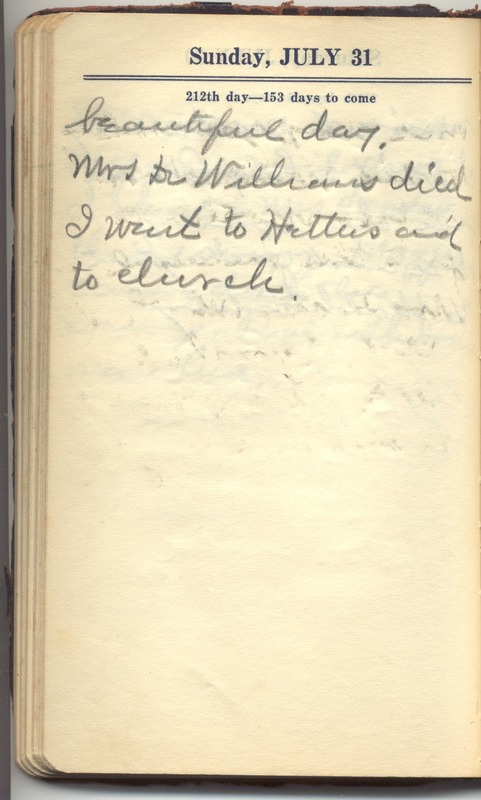 Sunday, JULY 31
212th day—153 days to come
beautiful day.
Mrs Dr Williams died
I went to Hetties and
to church.